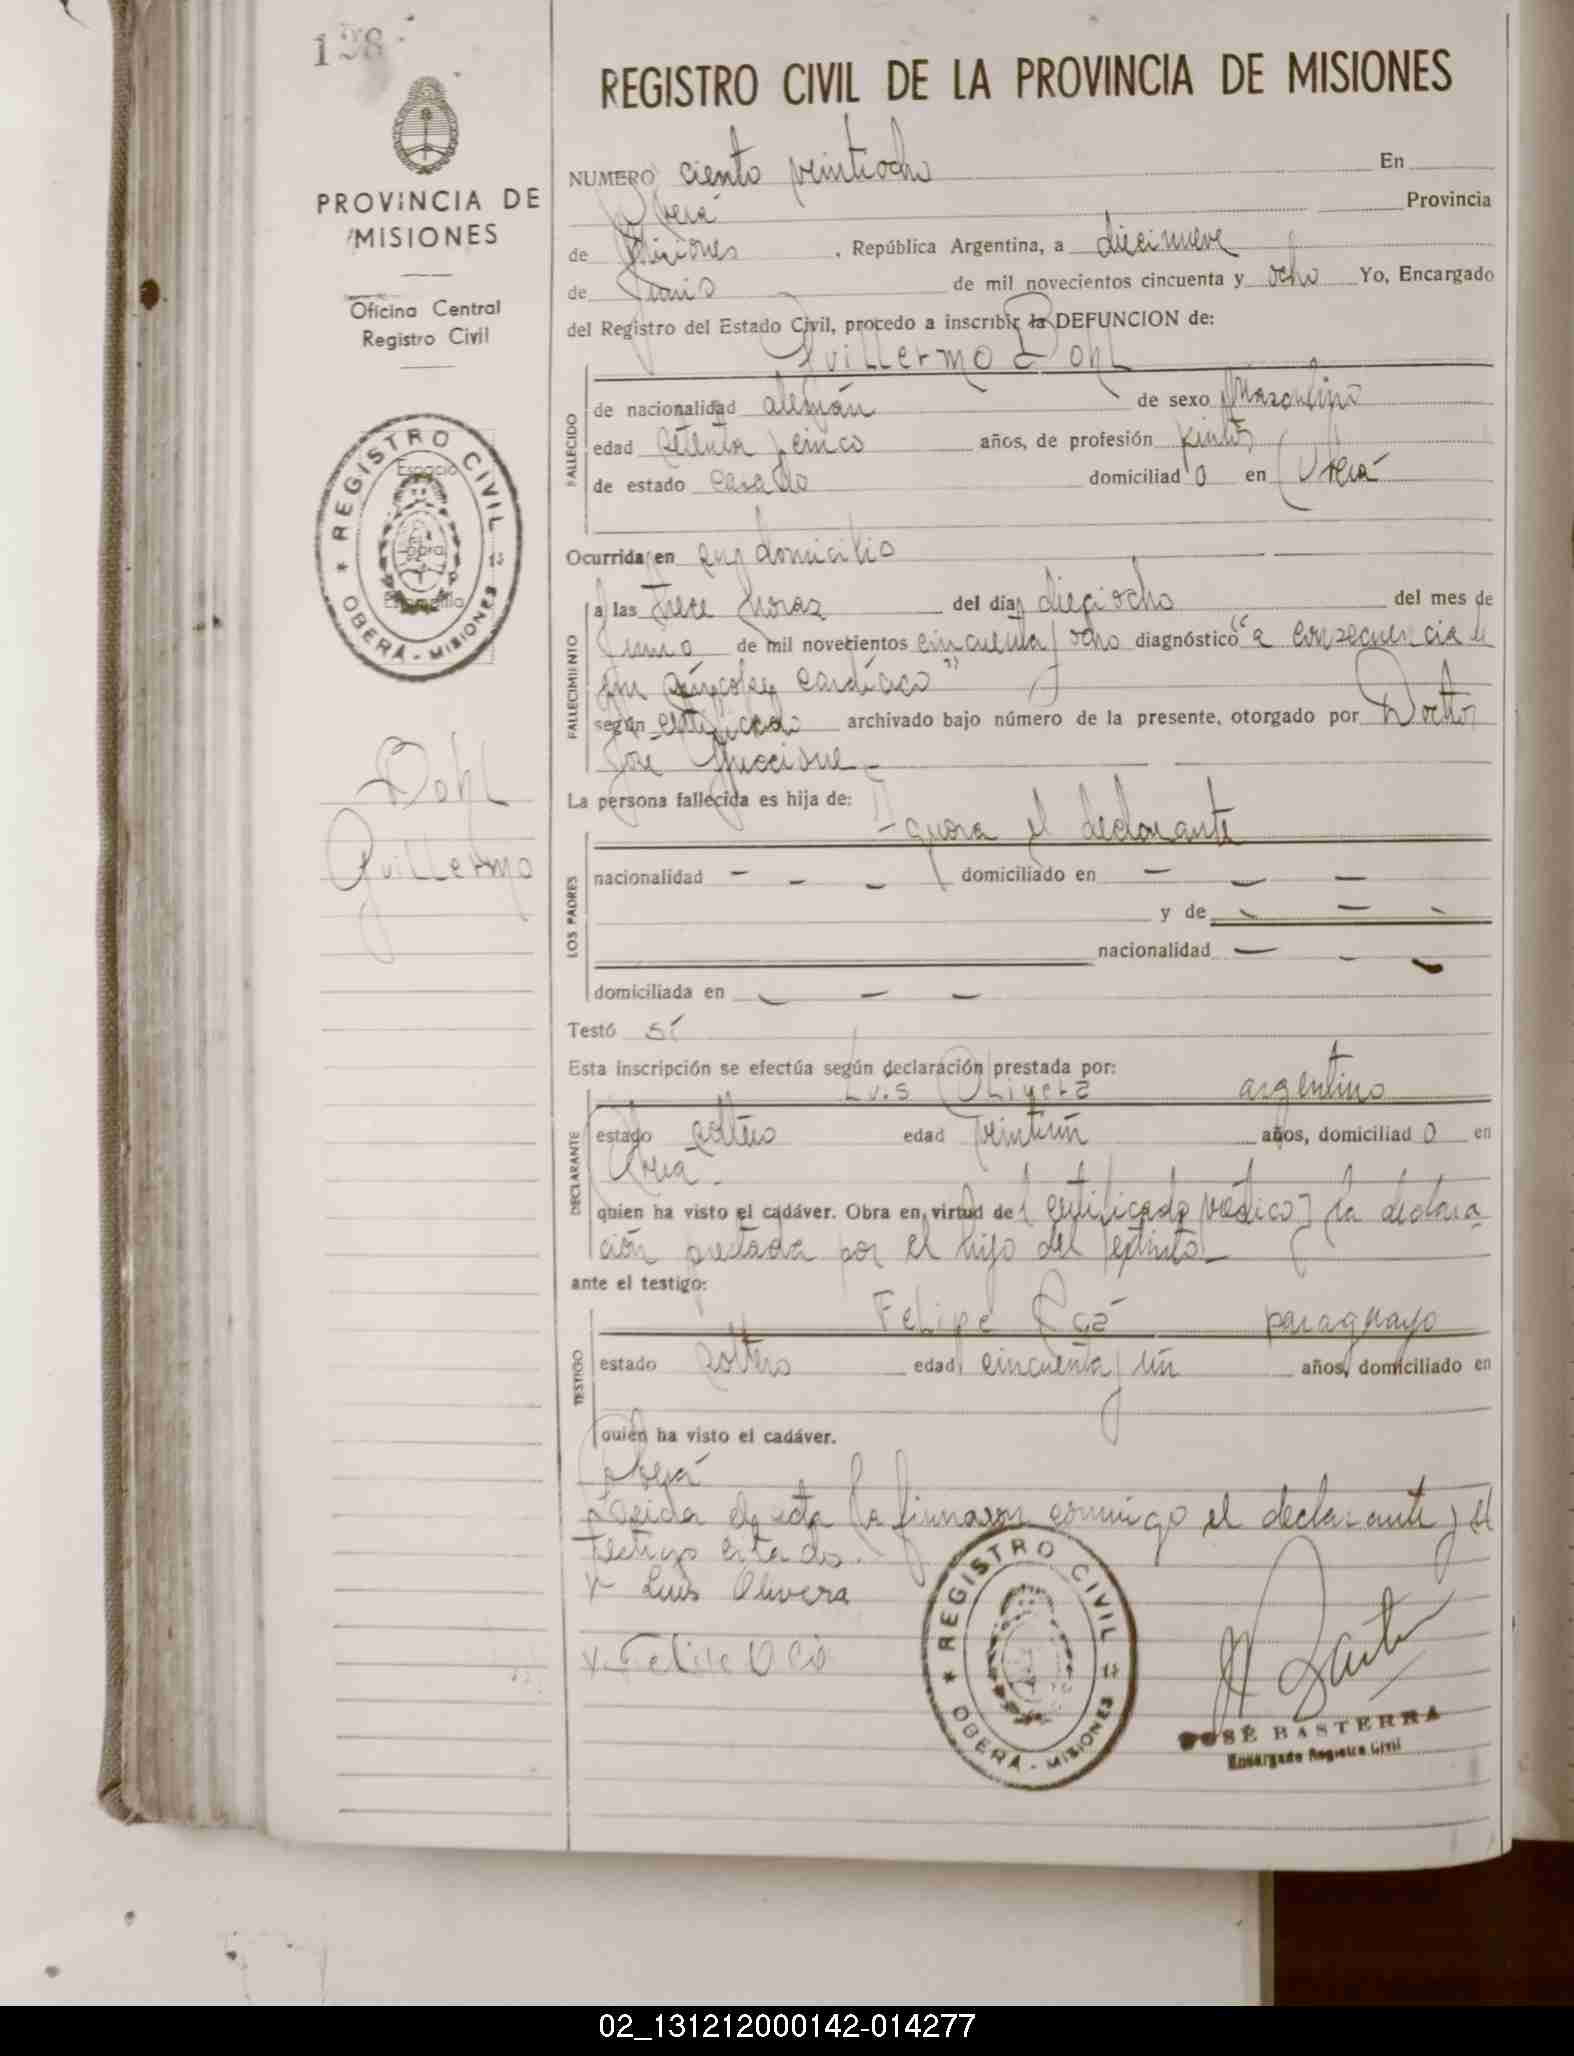 128
PROVINCIA DE
MISIONES
Oficina Central
Registro Civil
REGISTRO CIVIL
Espacio
para
Estampilla
OBERÁ - MISIONES
Dohl
Guillermo
REGISTRO CIVIL DE LA PROVINCIA DE MISIONES
NUMERO ciento veintiocho En
Oberá Provincia
de Misiones , República Argentina, a diecinueve
de Junio de mil novecientos cincuenta y ocho Yo, Encargado
del Registro del Estado Civil, procedo a inscribir la DEFUNCION de:
Guillermo Dohl
FALLECIDO
de nacionalidad alemán de sexo Masculino
edad setenta y cinco años, de profesión pintor
de estado casado domiciliad o en Oberá
Ocurrida en su domicilio
FALLECIMIENTO
a las trece horas del día dieciocho del mes de
Junio de mil novecientos cincuenta y ocho diagnóstico "a consecuencia de
un síncope cardíaco"
según certificado archivado bajo número de la presente, otorgado por Doctor
José
La persona fallecida es hija de:
Ignora el declarante
LOS PADRES
nacionalidad - - - domiciliado en - - -
y de - - -
nacionalidad - - -
domiciliada en - - -
Testó sí
Esta inscripción se efectúa según declaración prestada por:
Luis Olivera argentino
DECLARANTE
estado soltero edad veintiún años, domiciliad o en
Oberá.
quien ha visto el cadáver. Obra en virtud de certificado médico y la declara
ción prestada por el hijo del extinto
ante el testigo:
Felipe paraguayo
TESTIGO
estado soltero edad cincuenta y un años, domiciliado en
quien ha visto el cadáver.
Oberá
Leída el acta la firmaron conmigo el declarante y el
testigo citados.
x Luis Olivera
x Felipe
REGISTRO CIVIL
OBERÁ - MISIONES
JOSÉ BASTERRA
Encargado Registro Civil
02_131212000142-014277